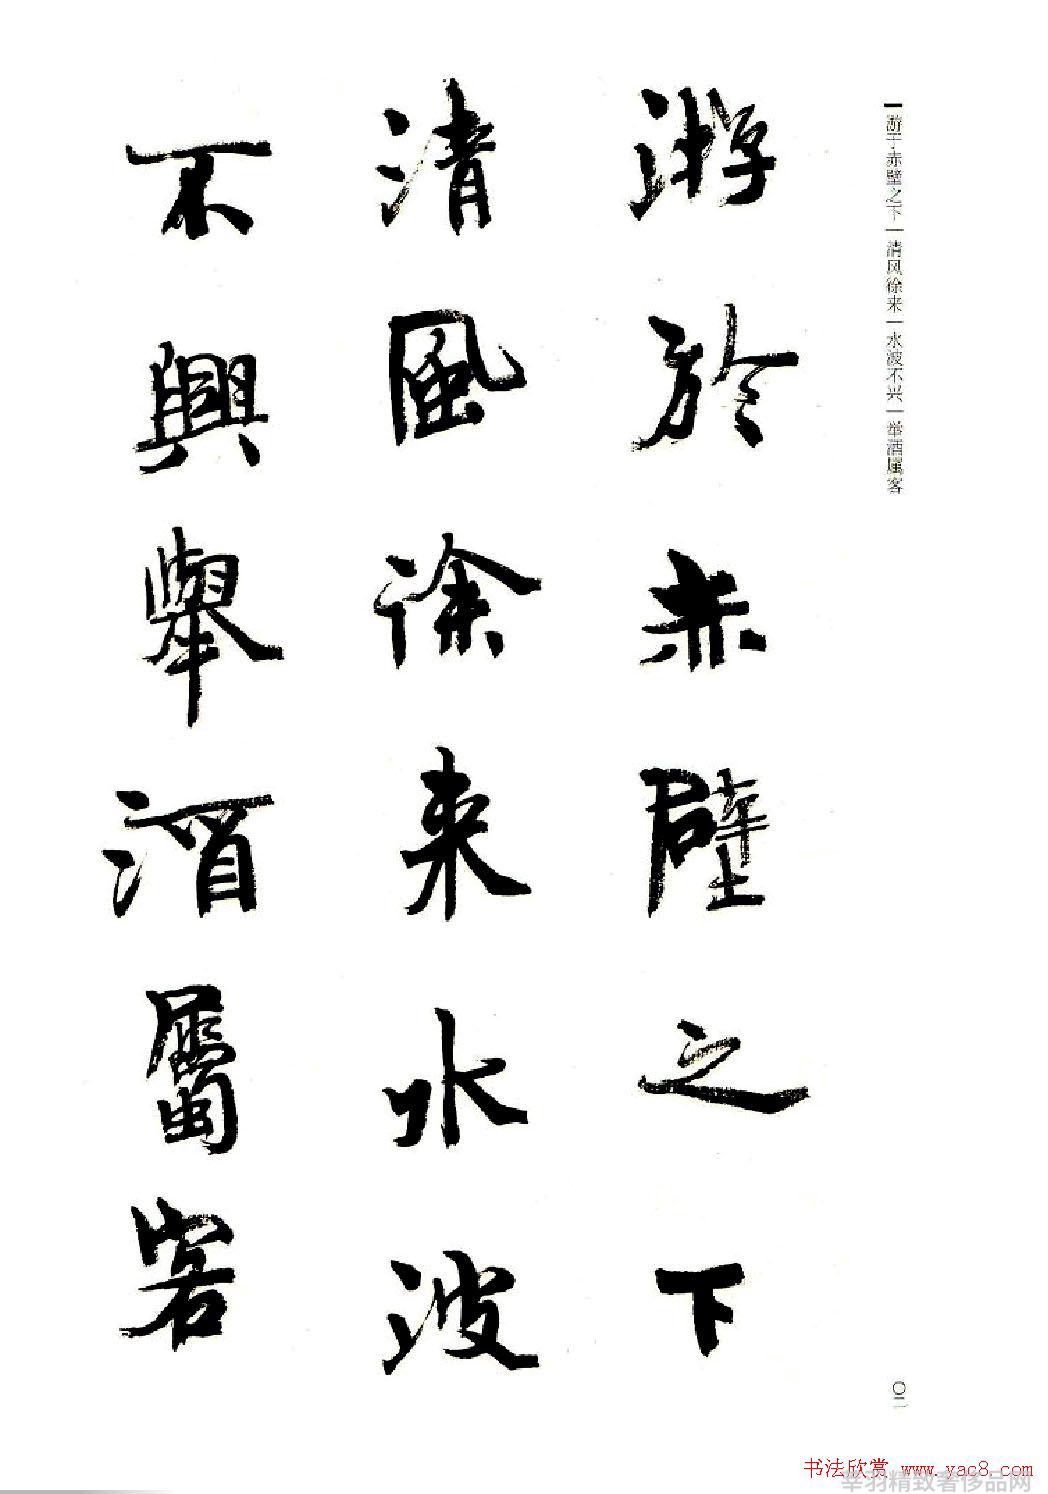 一游于赤壁之下一清风徐来一水波不兴一举酒属客
游於赤壁之下
清風徐来水波
不興舉酒屬客
〇二
书法欣赏 www.yac8.com
莘羽精致奢侈品网